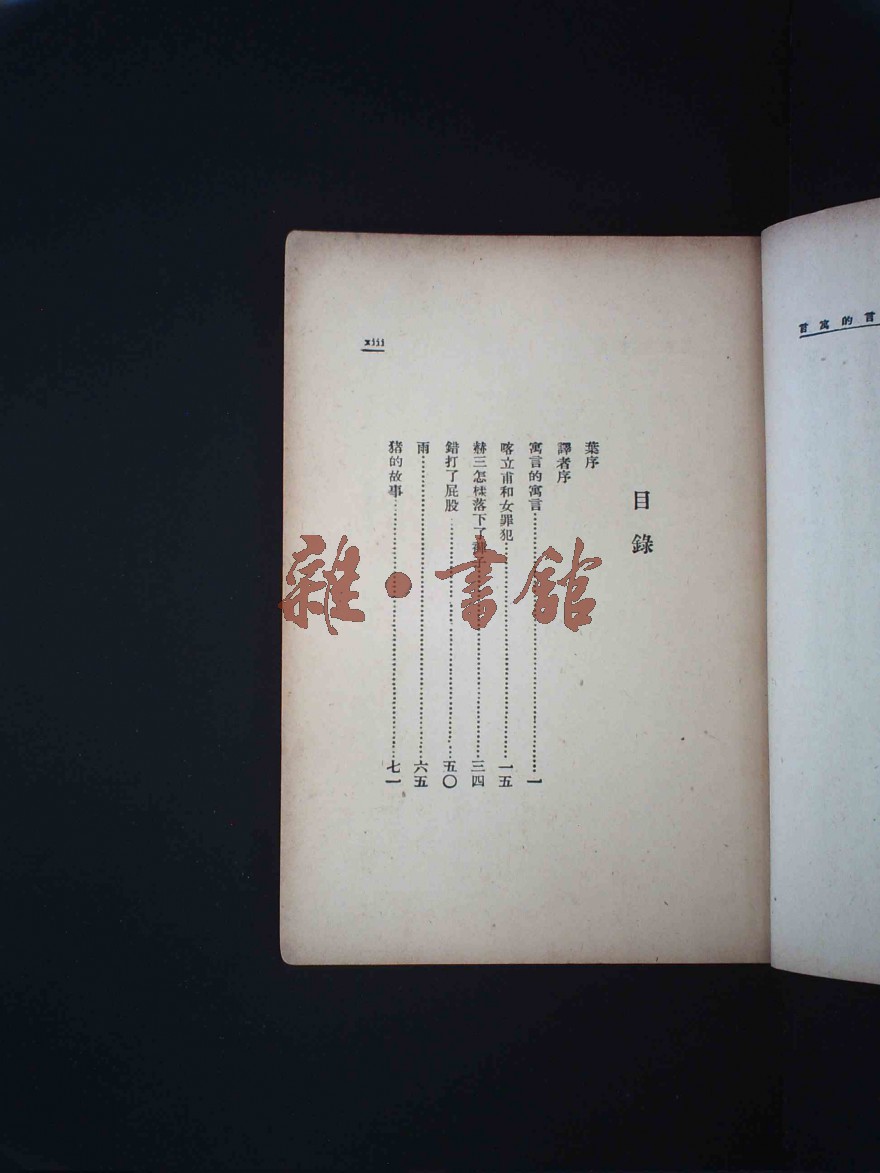 言寓的言
目錄
葉序
譯者序
寓言的寓言……一
喀立甫和女罪犯……一五
赫三怎樣落下了褲子……三四
錯打了屁股……五〇
雨……六五
猪的故事……七一
xiii
雜·書館